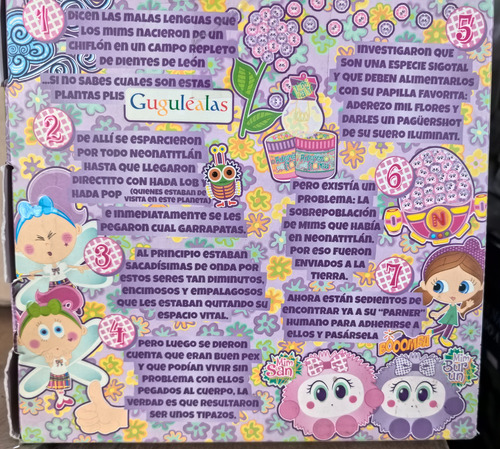 1
DICEN LAS MALAS LENGUAS QUE
LOS MIMS NACIERON DE UN
CHIFLÓN EN UN CAMPO REPLETO
DE DIENTES DE LEÓN
...SI NO SABES CUALES SON ESTAS
PLANTAS PLIS
Guguléalas
2
DE ALLÍ SE ESPARCIERON
POR TODO NEONATITLÁN
HASTA QUE LLEGARON
DIRECTITO CON HADA LOB
HADA POP (QUIENES ESTABAN DE
VISITA EN ESTE PLANETA)
E INMEDIATAMENTE SE LES
PEGARON CUAL GARRAPATAS.
3
AL PRINCIPIO ESTABAN
SACADÍSIMAS DE ONDA POR
ESTOS SERES TAN DIMINUTOS,
ENCIMOSOS Y EMPALAGOSOS
QUE LES ESTABAN QUITANDO SU
ESPACIO VITAL.
4
PERO LUEGO SE DIERON
CUENTA QUE ERAN BUEN PEX
Y QUE PODÍAN VIVIR SIN
PROBLEMA CON ELLOS
PEGADOS AL CUERPO, LA
VERDAD ES QUE RESULTARON
SER UNOS TIPAZOS.
5
INVESTIGARON QUE
SON UNA ESPECIE SIGOTAL
Y QUE DEBEN ALIMENTARLOS
CON SU PAPILLA FAVORITA:
ADEREZO MIL FLORES Y
DARLES UN PAGÜERSHOT
DE SU SUERO ILUMINATI.
6
PERO EXISTÍA UN
PROBLEMA: LA
SOBREPOBLACIÓN
DE MIMS QUE HABÍA
EN NEONATITLÁN.
POR ESO FUERON
ENVIADOS A LA
TIERRA.
N
7
AHORA ESTÁN SEDIENTOS DE
ENCONTRAR YA A SU "PARNER"
HUMANO PARA ADHERIRSE A
ELLOS Y PASÁRSELA
BOOOMBI!